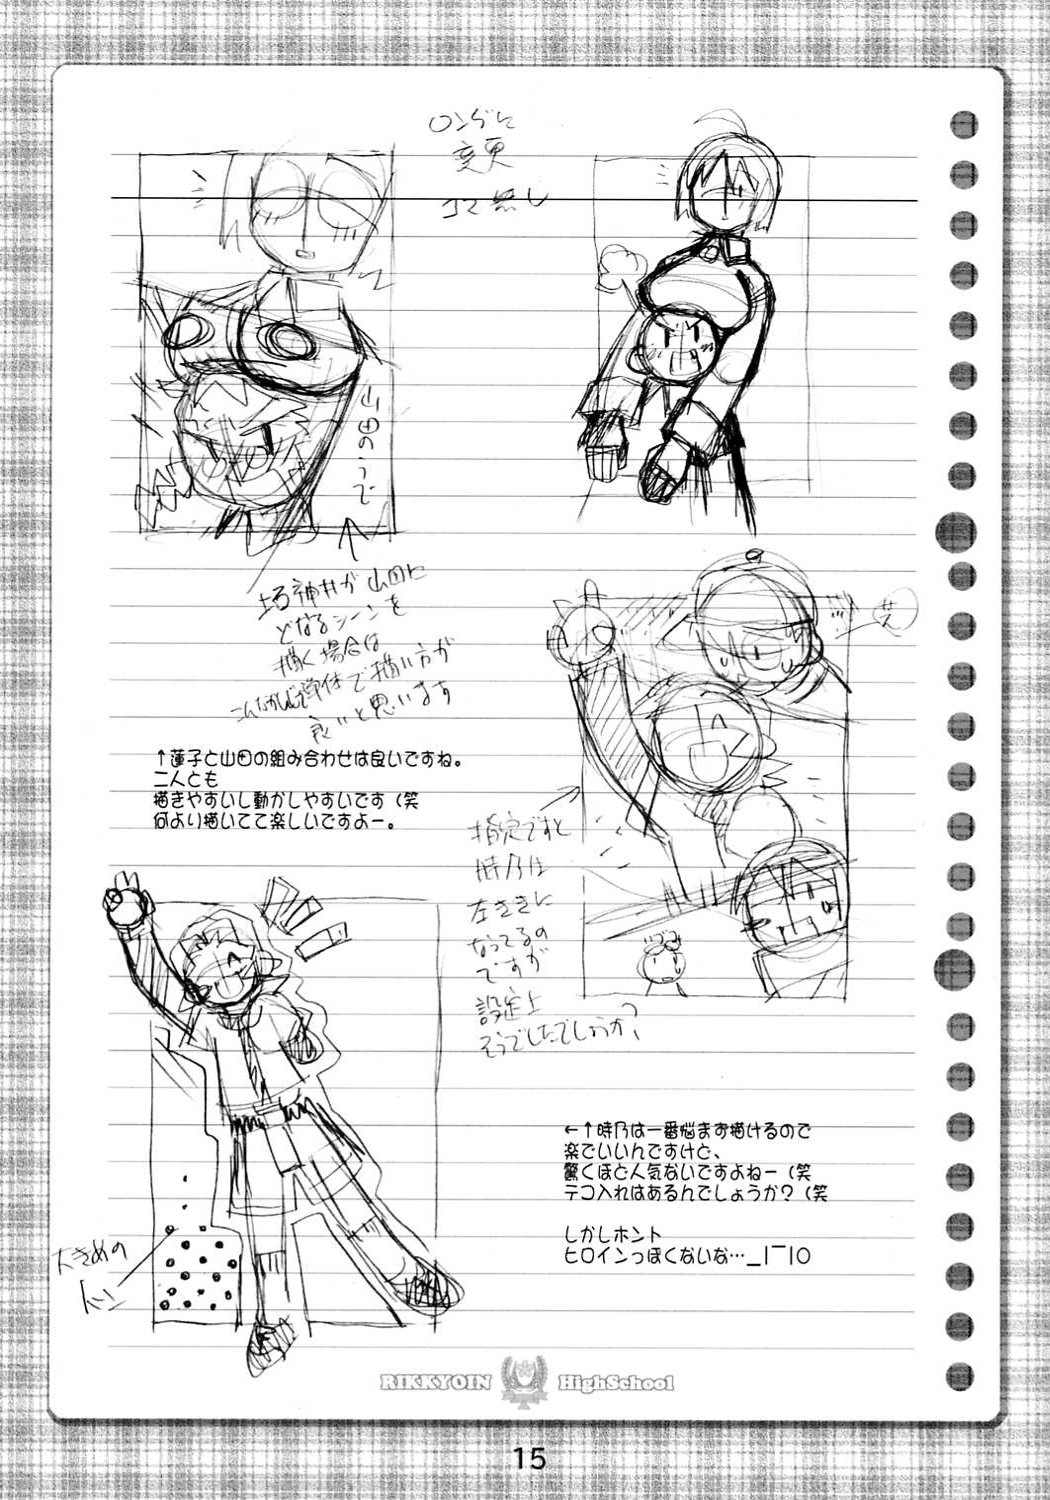 ロングに
変更
コマ無し
山田のうで
神井が山田に
どなるシーンを
描く場合は
描い方が
良いと思います
↑蓮子と山田の組み合わせは良いですね。
二人とも
描きやすいし動かしやすいです（笑
何より描いてて楽しいですよー。
指定ですと
時乃は
左ききに
なってるの
ですが
設定上
そうでしたでしょうか？
←↑時乃は一番悩まず描けるので
楽でいいんですけど、
驚くほど人気ないですよねー（笑
テコ入れはあるんでしょうか？（笑
しかしホント
ヒロインっぽくないな…_|￣|○
大きめの
トーン
RIKKYOIN HighSchool
15